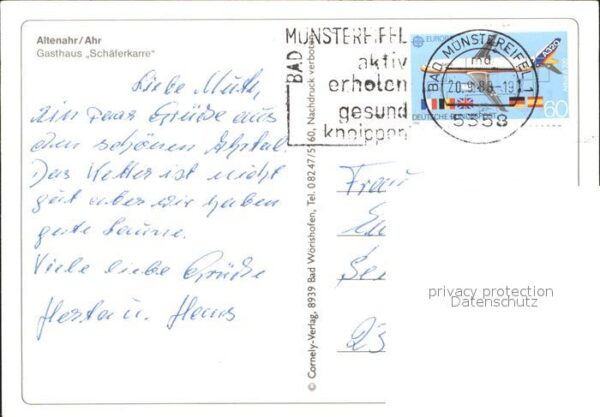 Altenahr/Ahr
Gasthaus „Schäferkarre"
Liebe Mutti,
ein paar Grüße aus
dem schönen Ahrtal
Das Wetter ist nicht
gut aber wir haben
gute Laune.
Viele liebe Grüße
Herta u. Hans
© Cornely-Verlag, 8939 Bad Wörishofen, Tel. 08247/5160, Nachdruck verboten
BAD MÜNSTEREIFEL
aktiv
erholen
gesund
kneippen
EUROPA
A320
60
DEUTSCHE BUNDESPOST
BAD MÜNSTEREIFEL 1
md
-19
5358
Frau
23
privacy protection
Datenschutz